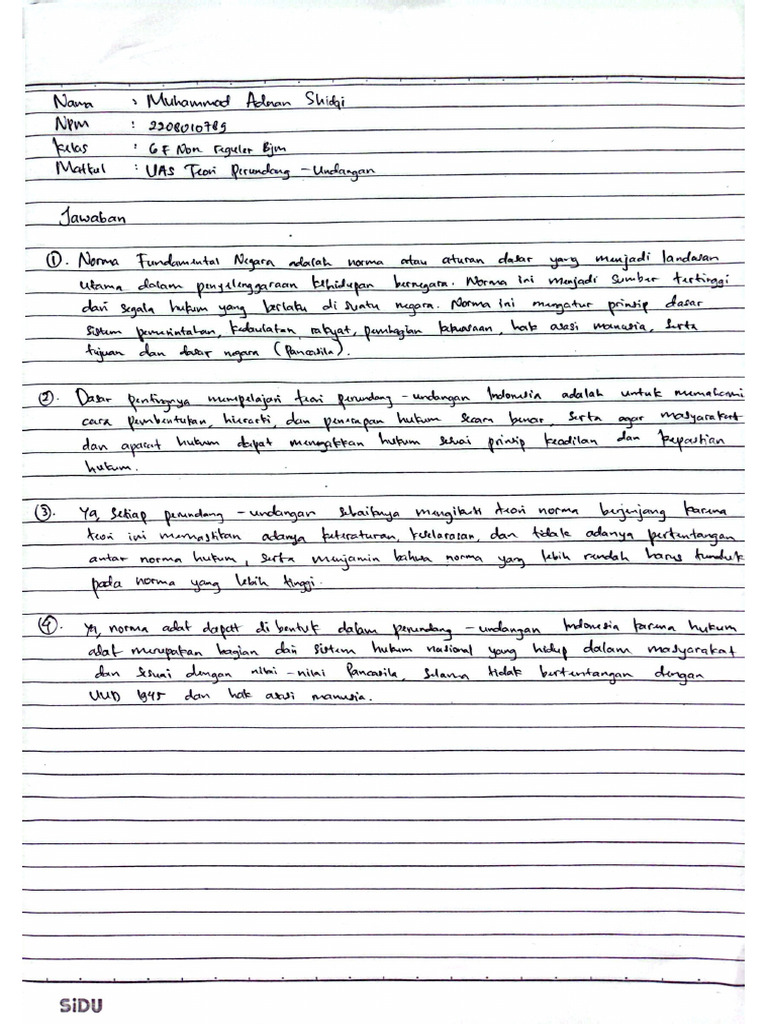 Nama : Muhammad Adnan Shidqi
NPM : 2208010789
Kelas : 6F Non Reguler Bjm
Matkul : UAS Teori Perundang-Undangan
Jawaban
1. Norma Fundamental Negara adalah norma atau aturan dasar yang menjadi landasan
utama dalam penyelenggaraan kehidupan bernegara. Norma ini menjadi sumber tertinggi
dari segala hukum yang berlaku di suatu negara. Norma ini mengatur prinsip dasar
sistem pemerintahan, kedaulatan, rakyat, pembagian kekuasaan, hak asasi manusia, serta
tujuan dan dasar negara (Pancasila).
2. Dasar pentingnya mempelajari teori perundang-undangan Indonesia adalah untuk memahami
cara pembentukan, hierarki, dan penerapan hukum secara benar, serta agar masyarakat
dan aparat hukum dapat menegakkan hukum sesuai prinsip keadilan dan kepastian
hukum.
3. Ya, setiap perundang-undangan sebaiknya mengikuti teori norma berjenjang karena
teori ini memastikan adanya keteraturan, keselarasan, dan tidak adanya pertentangan
antar norma hukum, serta menjamin bahwa norma yang lebih rendah harus tunduk
pada norma yang lebih tinggi.
4. Ya, norma adat dapat dibentuk dalam perundang-undangan Indonesia karena hukum
adat merupakan bagian dari sistem hukum nasional yang hidup dalam masyarakat
dan sesuai dengan nilai-nilai Pancasila, selama tidak bertentangan dengan
UUD 1945 dan hak asasi manusia.
SiDU